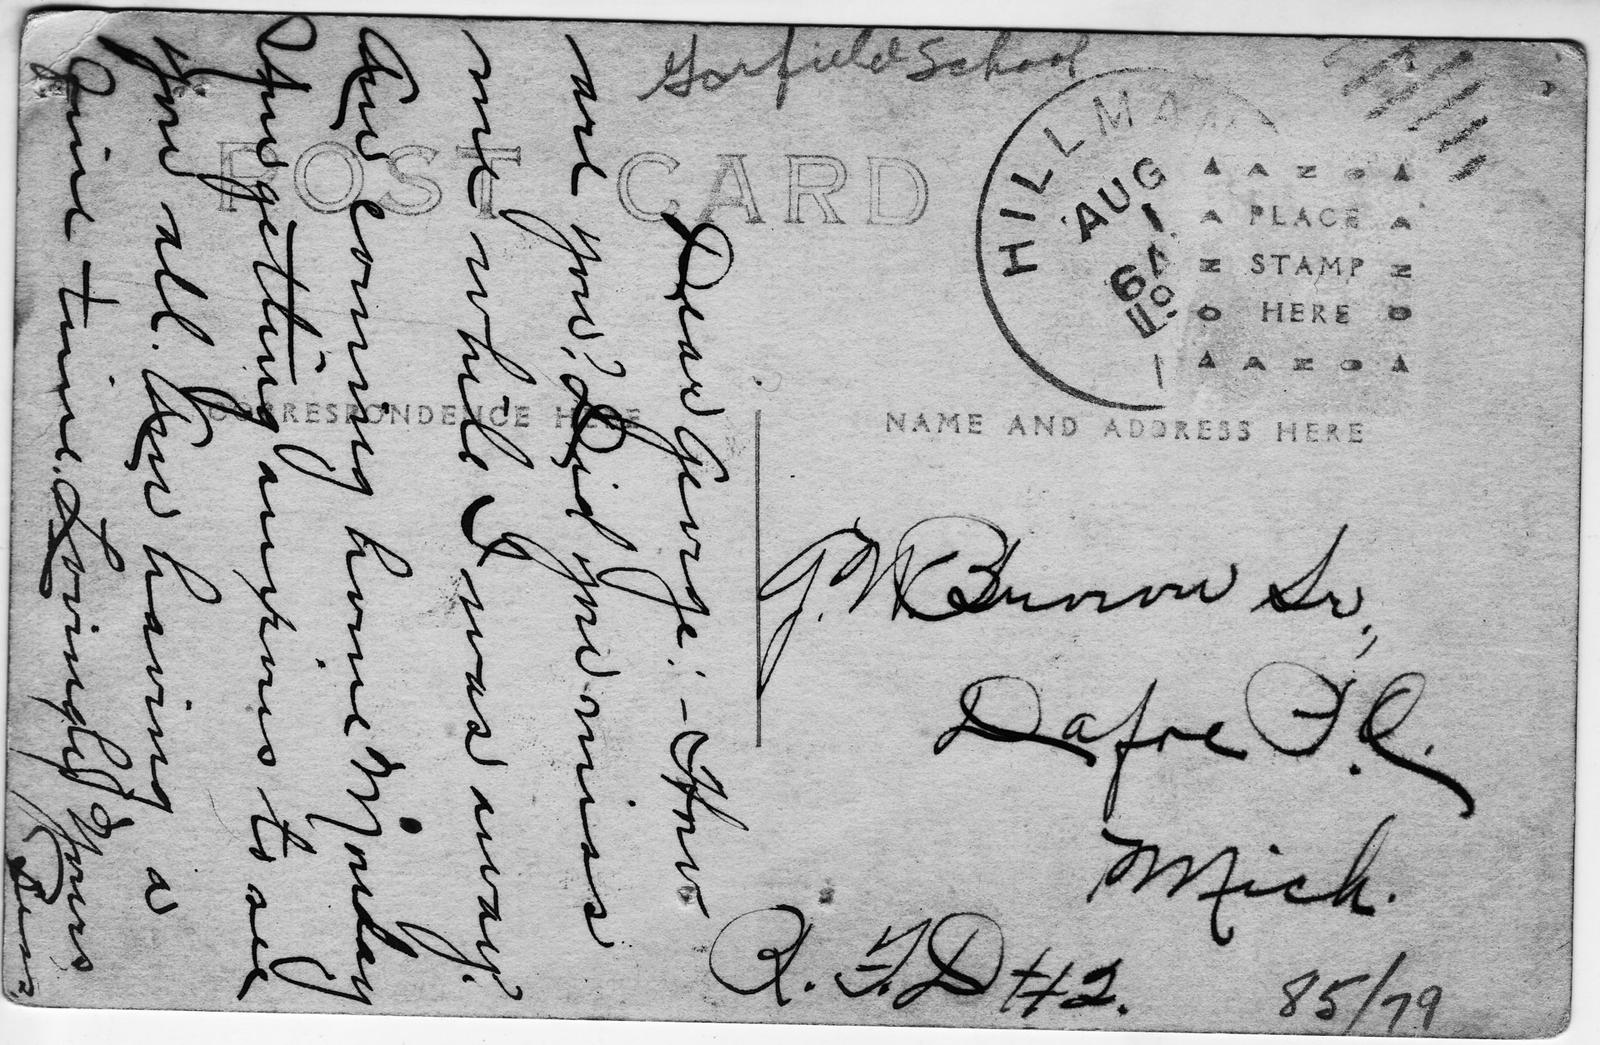 Garfield School
POST CARD
HILLMAN
AUG
1
PLACE
STAMP
HERE
CORRESPONDENCE HERE
NAME AND ADDRESS HERE
Dear George:- How
are you? Did you miss
me while I was away.
Am coming home Monday
Am getting anxious to see
you all. Am having a
fine time. Lovingly Yours
J.W. Brown Sr.,
Dafoe P.O.
Mich.
R.F.D #2.
85/79